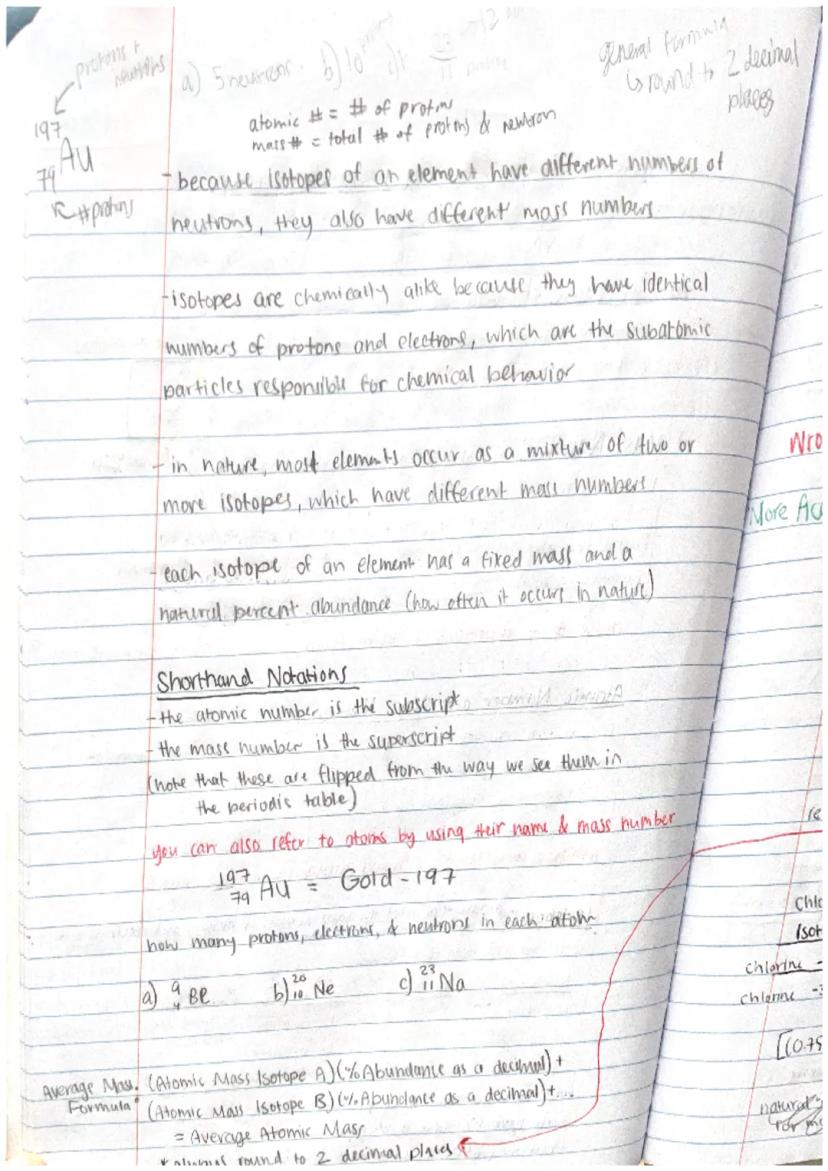 protons +
neutrons
a) 5 neutrons. b) 10
general formula
↳ round to 2 decimal
places
197
79 Au
# protons
atomic # = # of protons
mass # = total # of protons & neutron
- because isotopes of an element have different numbers of
neutrons, they also have different mass numbers.
- isotopes are chemically alike because they have identical
numbers of protons and electrons, which are the subatomic
particles responsible for chemical behavior
- in nature, most elements occur as a mixture of two or
more isotopes, which have different mass numbers
- each isotope of an element has a fixed mass and a
natural percent abundance (how often it occurs in nature)
Shorthand Notations
- the atomic number is the subscript
- the mass number is the superscript
(note that these are flipped from the way we see them in
the periodis table)
you can also refer to atoms by using their name & mass number
197
79 Au = Gold - 197
how many protons, electrons, & neutrons in each atom
a) 9 4 Be b) 20 10 Ne c) 23 11 Na
Average Mass (Atomic Mass Isotope A)(% Abundance as a decimal) +
Formula: (Atomic Mass Isotope B)(% Abundance as a decimal) + ...
= Average Atomic Mass
* always round to 2 decimal places
Wro
More Acc
re
Chlo
Isot
chlorine -
chlorine -3
[(0.75
natural
for